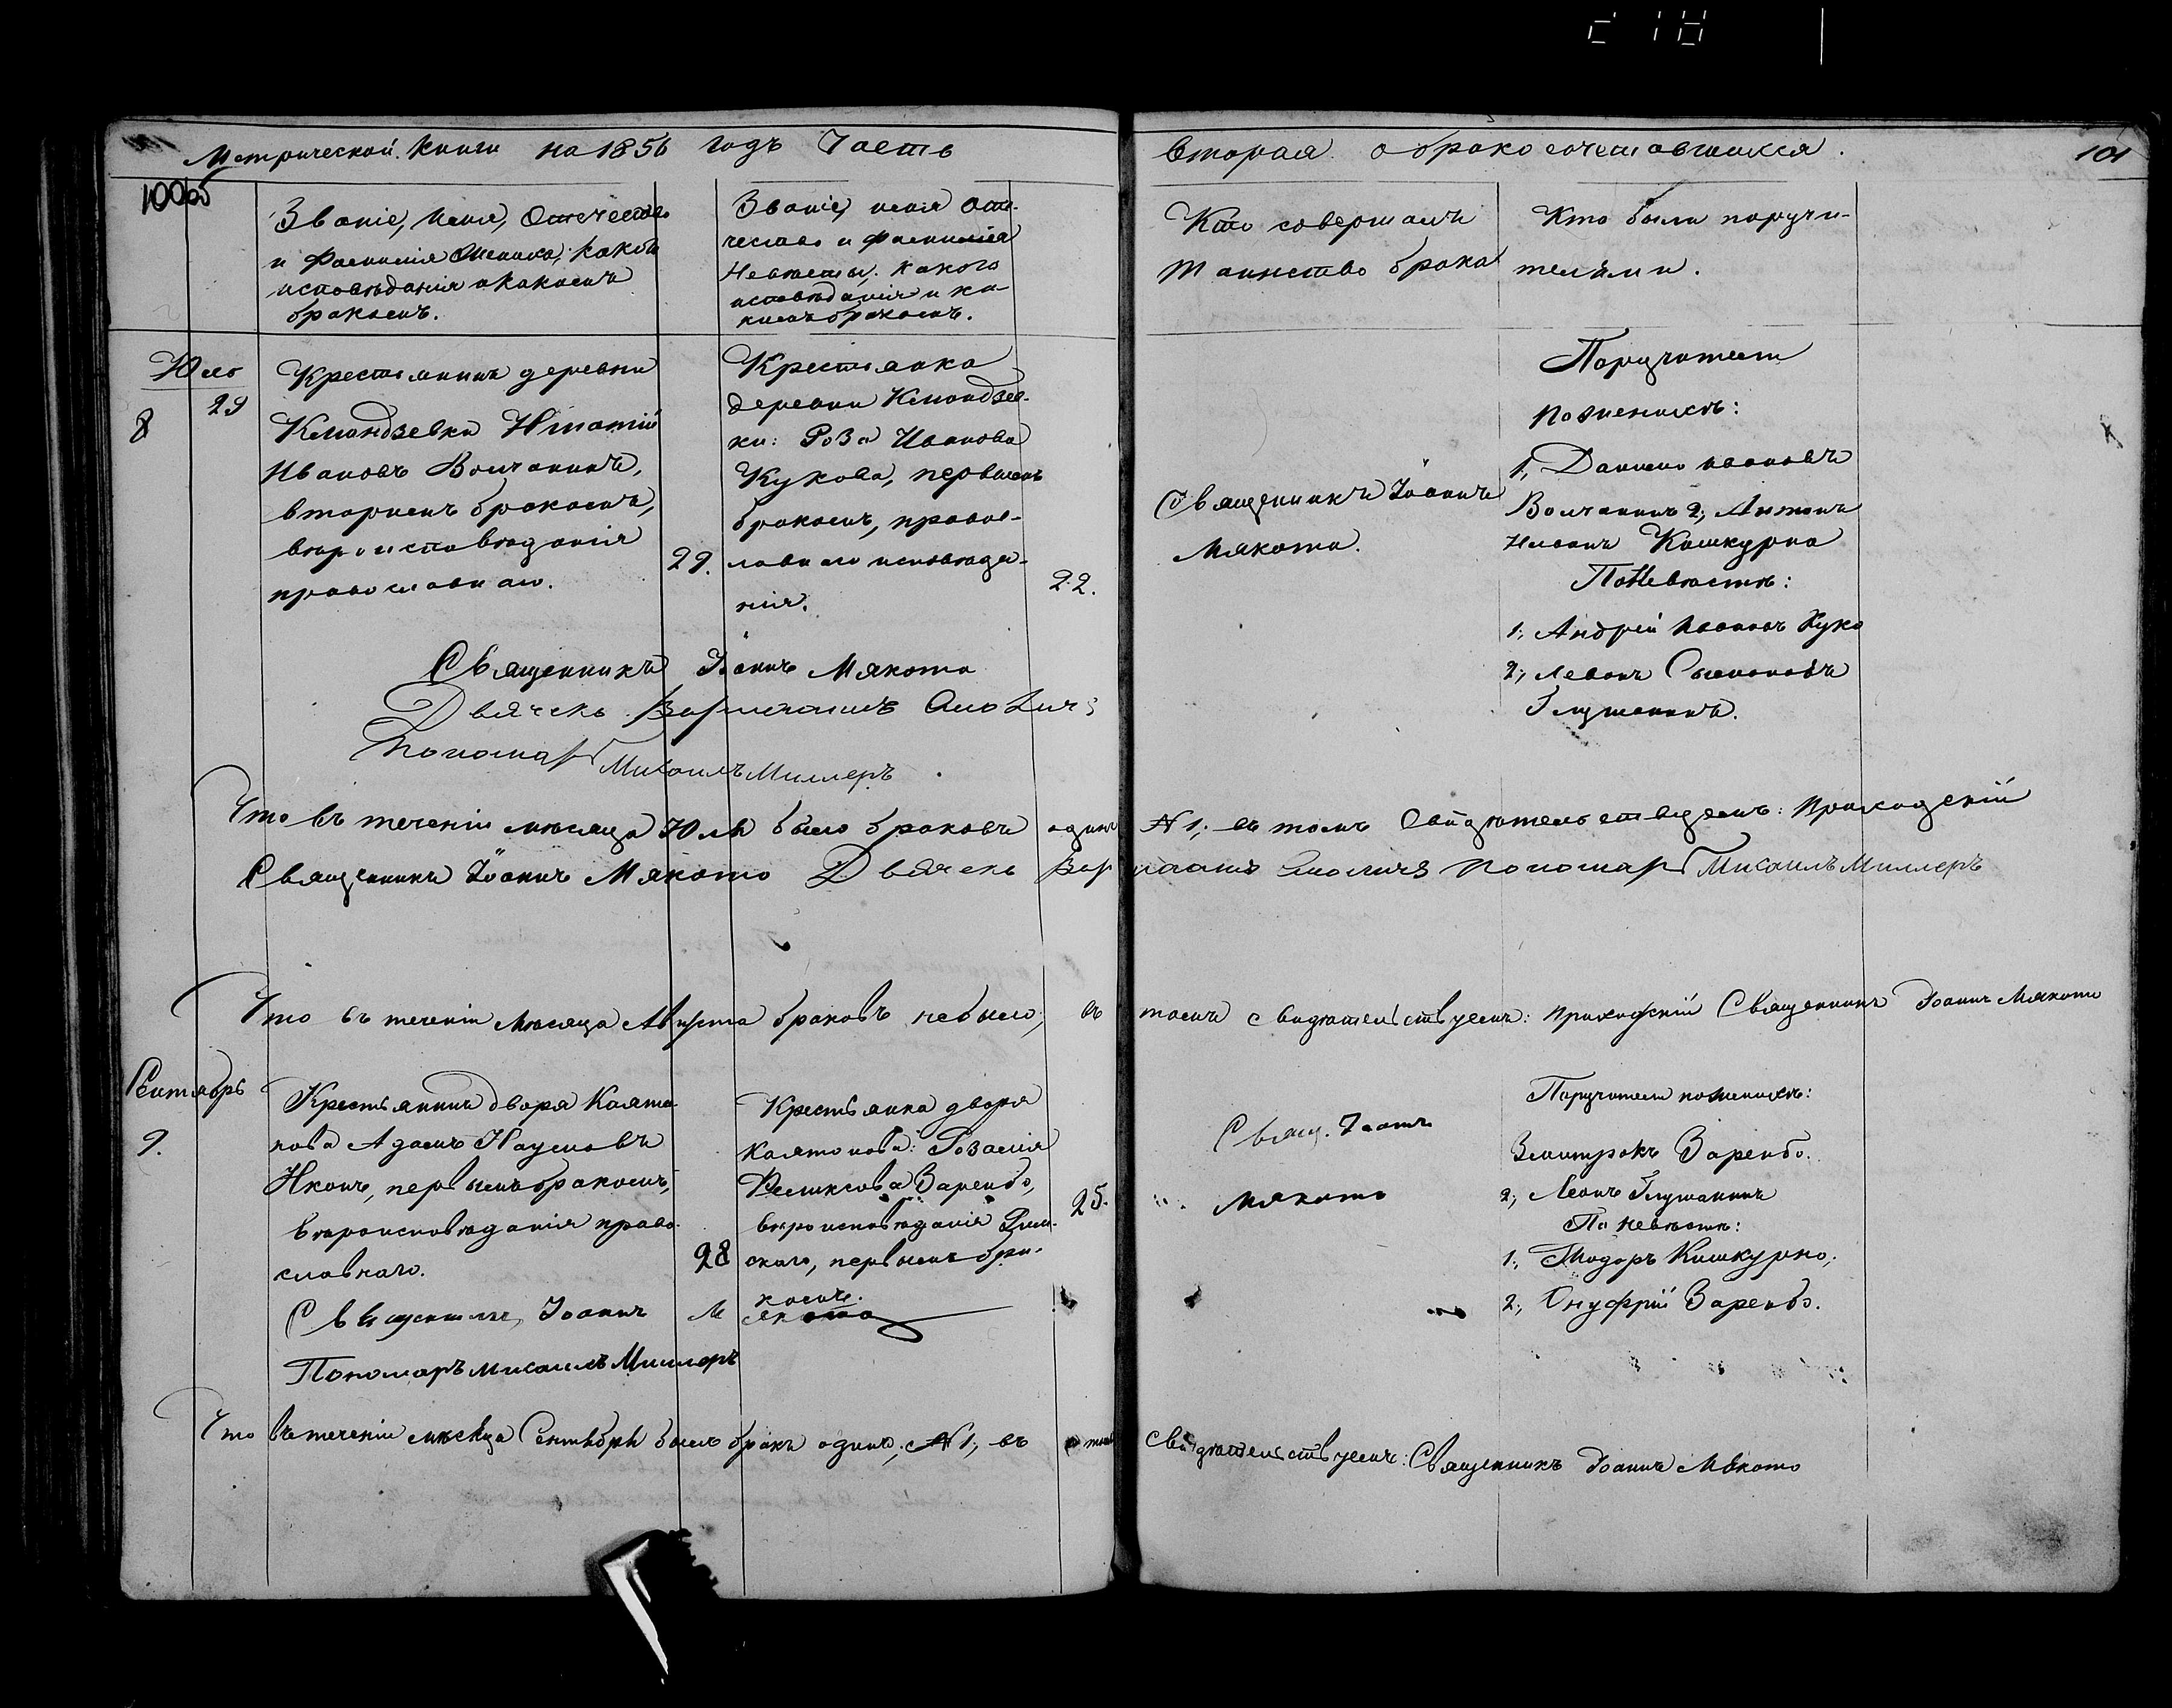 Метрической книги на 1856 годъ Часть
вторая о бракосочетавшихся.
101
100об
Званіе, имя, Отечество
и фамилія Жениха, какого
исповѣданія и какимъ
бракомъ.
Званіе, имя оте-
чество и фамилія
Невѣсты. какого
исповѣданія и ка-
кимъ бракомъ.
Кто совершалъ
таинство брака
Кто были поручи-
телями.
Юль
8
29
Крестьянинъ деревни
Игнатій
Ивановъ Волчанинъ,
вторымъ бракомъ,
вѣроисповѣданія
православнаго.
29.
Крестьянка
деревни
ки: Роза Иванова
Кукова, первымъ
бракомъ, правос-
лавнаго исповѣда-
нія.
22.
Священникъ Іоаннъ
Мякота.
Поручители
по женихѣ:
1, Данило Ивановъ
Волчанинъ 2, Антонъ
Кишкурна
По Невѣстѣ:
1, Андрей Ивановъ Куко
2, Леванъ Сымоновъ
Глушанинъ.
Священникъ Іоаннъ Мякота
Дьячекъ
Пономарь Михаилъ Миллеръ
Что въ теченіи мѣсяца Юля было браковъ одинъ № 1; въ томъ свидѣтельствуемъ: Приходскій
Священникъ Іоаннъ Мякота Дьячекъ Пономарь Михаилъ Миллеръ
Что въ теченіи мѣсяца Августа браковъ небыло, въ томъ свидѣтельствуемъ: Приходскій Священникъ Іоаннъ Мякота
Сентябрь
9.
Крестьянинъ двора Калята
нова Адамъ Наумовъ
Иконъ, первымъ бракомъ,
вѣроисповѣданія право
славнаго.
28
Крестьянка двора
Калятонова: Розалія
Феликсова Зарембо,
вѣроисповѣданія Рим-
скаго, первымъ бра-
комъ.
25.
Свящ. Іоаннъ
Мякота
Поручители по женихѣ:
Змитрокъ Зарембо.
2, Леонъ Глушанинъ
По невѣстѣ:
1, Тодоръ Кишкурно,
2, Онуфрій Зарембо.
Священникъ Іоаннъ Мякота
Пономарь Михаилъ Миллеръ
Что въ теченіи мѣсяца Сентября былъ бракъ одинъ, № 1, въ томъ свидѣтельствуемъ: Священникъ Іоаннъ Мякота